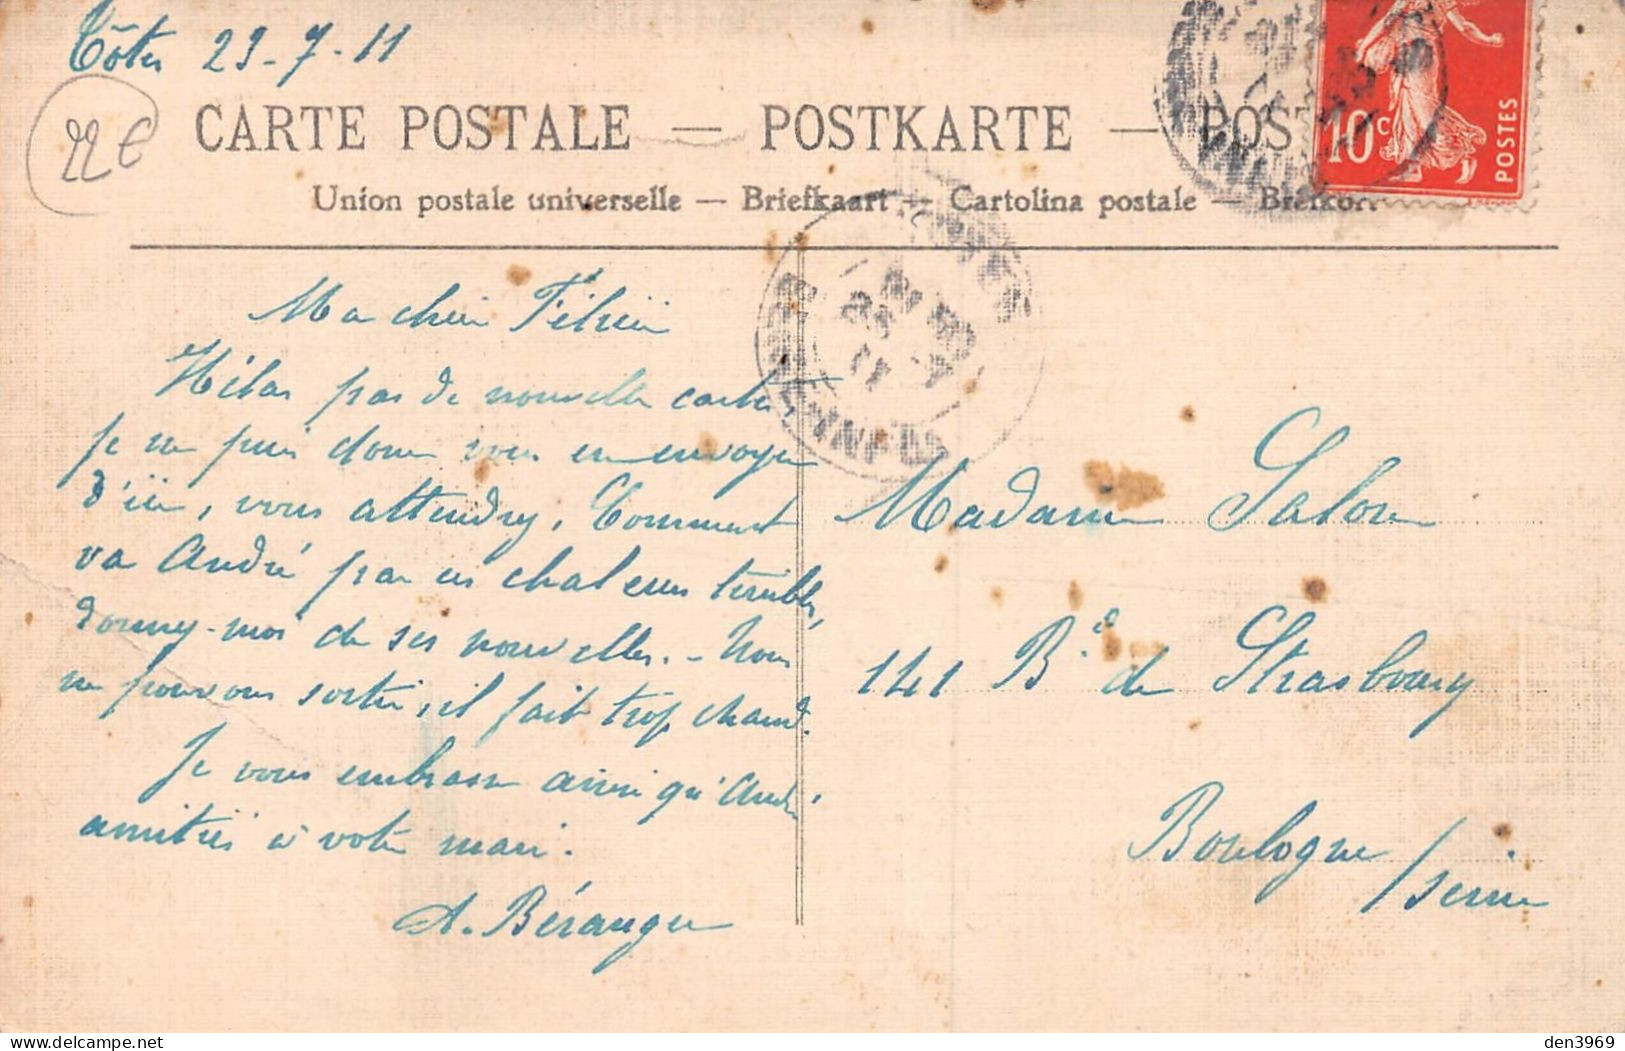 Tôtes 29-7-11
22€
CARTE POSTALE — POSTKARTE — POST
Union postale universelle — Briefkaart — Cartolina postale — Brefkort
10c
POSTES
SEINE-INFRE
Ma chère Félicie
Hélas pas de nouvelle cartes
je ne puis donc vous en envoyer
d'ici, vous attendrez. Comment
va André par ces chaleurs terribles,
donnez-moi de ses nouvelles. - Nous
ne pouvons sortir, il fait trop chaud.
Je vous embrasse ainsi qu'André
amitiés à votre mari.
A. Béranger
Madame Salon
141 Bd de Strasbourg
Boulogne /Seine
den3969